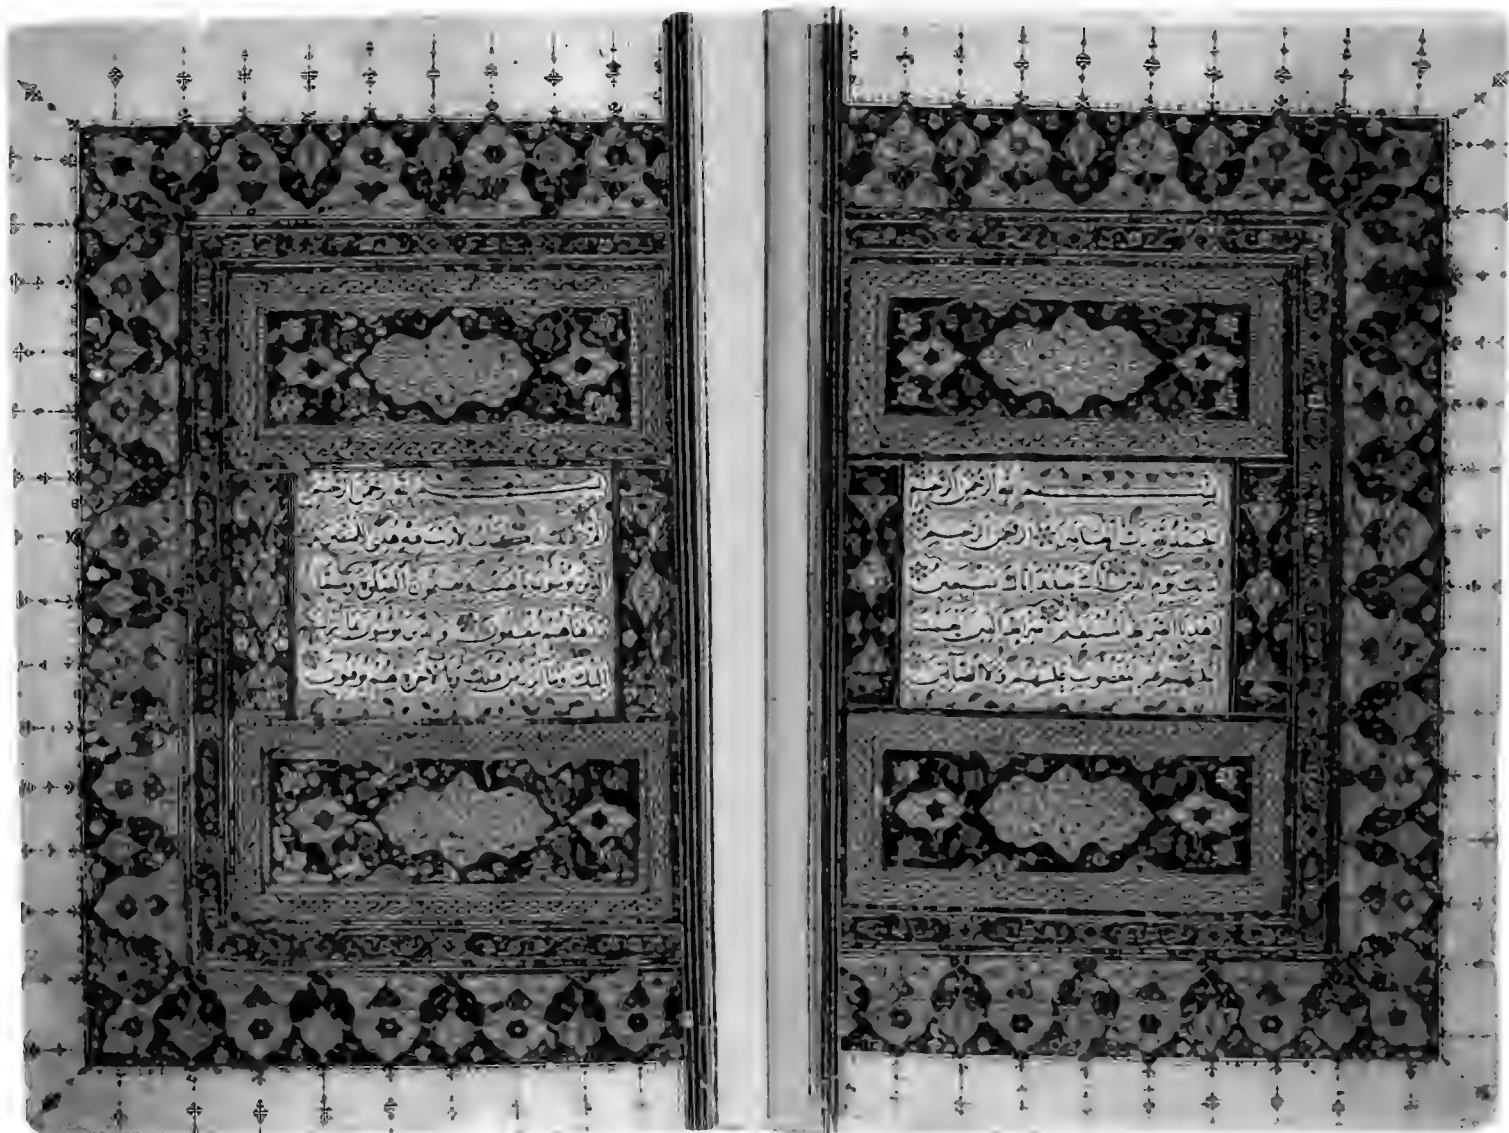 بسم الله الرحمن الرحيم
الحمد لله رب العالمين الرحمن الرحيم
ملك يوم الدين اياك نعبد واياك نستعين
اهدنا الصراط المستقيم صراط الذين انعمت
عليهم غير المغضوب عليهم ولا الضالين
بسم الله الرحمن الرحيم
الم ذلك الكتاب لا ريب فيه هدى للمتقين
الذين يؤمنون بالغيب ويقيمون الصلوة ومما
رزقناهم ينفقون والذين يؤمنون بما انزل
اليك وما انزل من قبلك وبالاخرة هم يوقنون